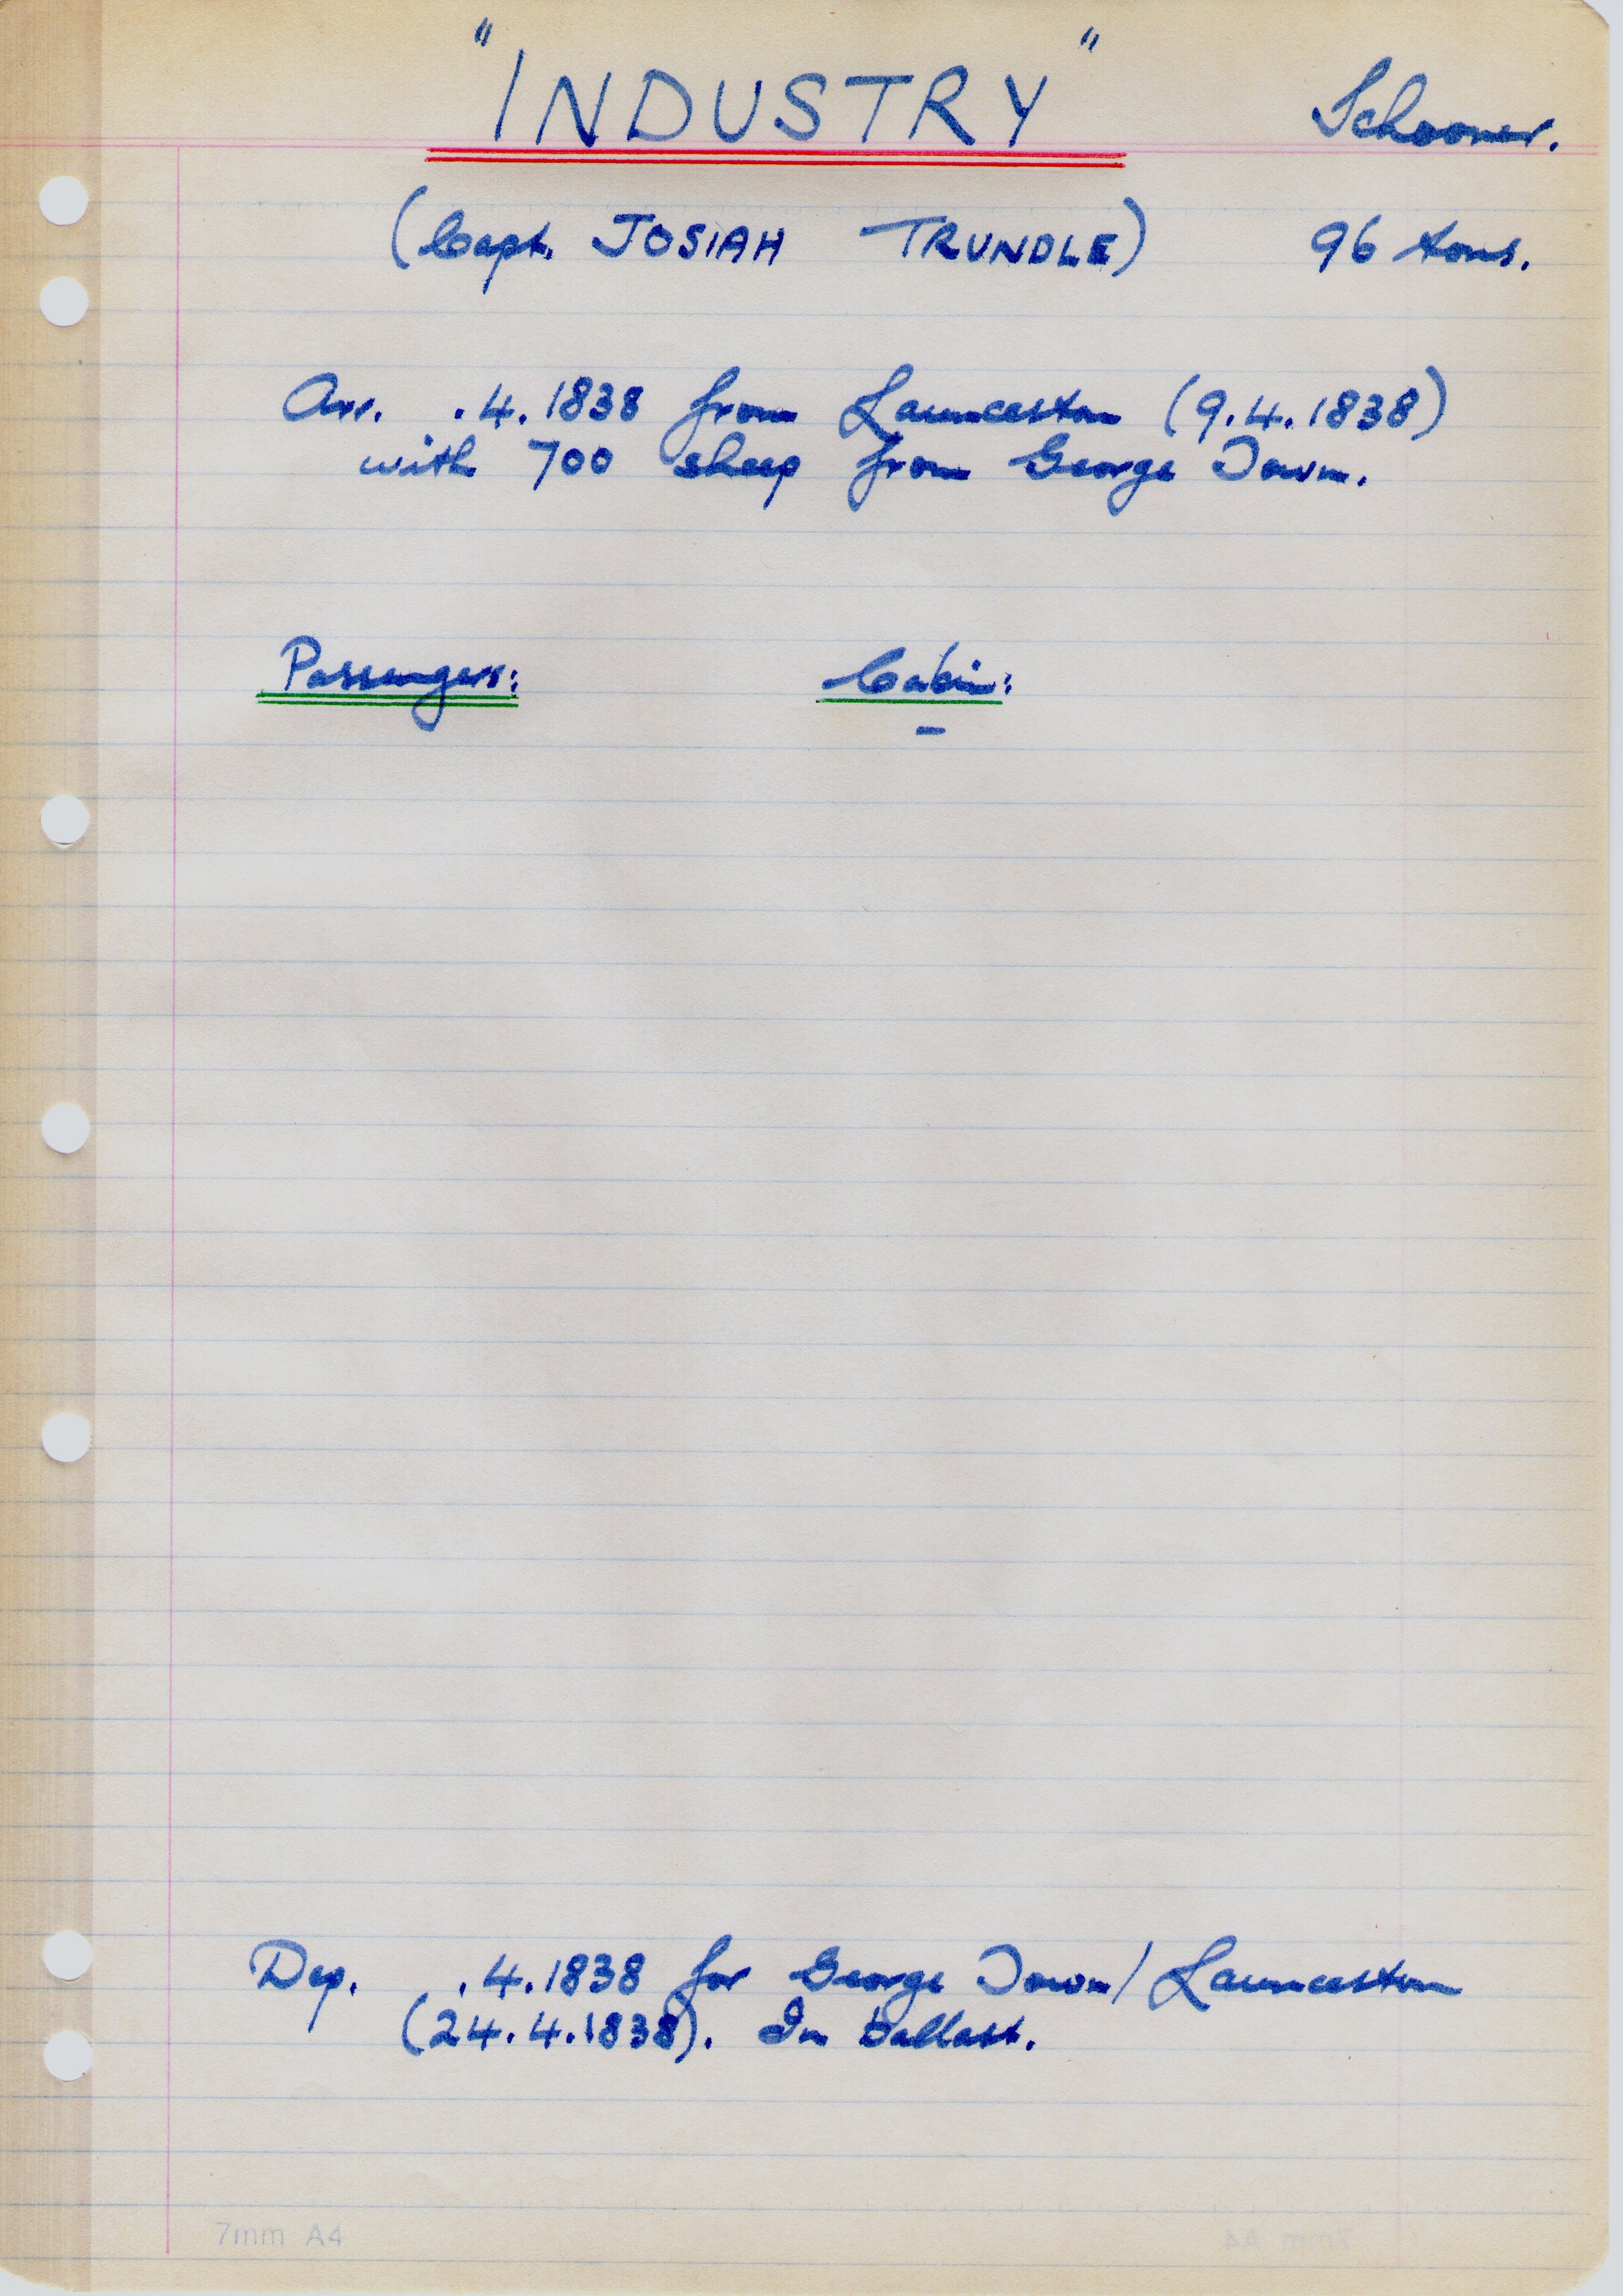 "INDUSTRY" Schooner.
(Capt. JOSIAH TRUNDLE) 96 tons.
Arr. .4.1838 from Launceston (9.4.1838)
with 700 sheep from George Town.
Passengers: Cabin:
–
Dep. .4.1838 for George Town/Launceston
(24.4.1838). In ballast.
7mm A4